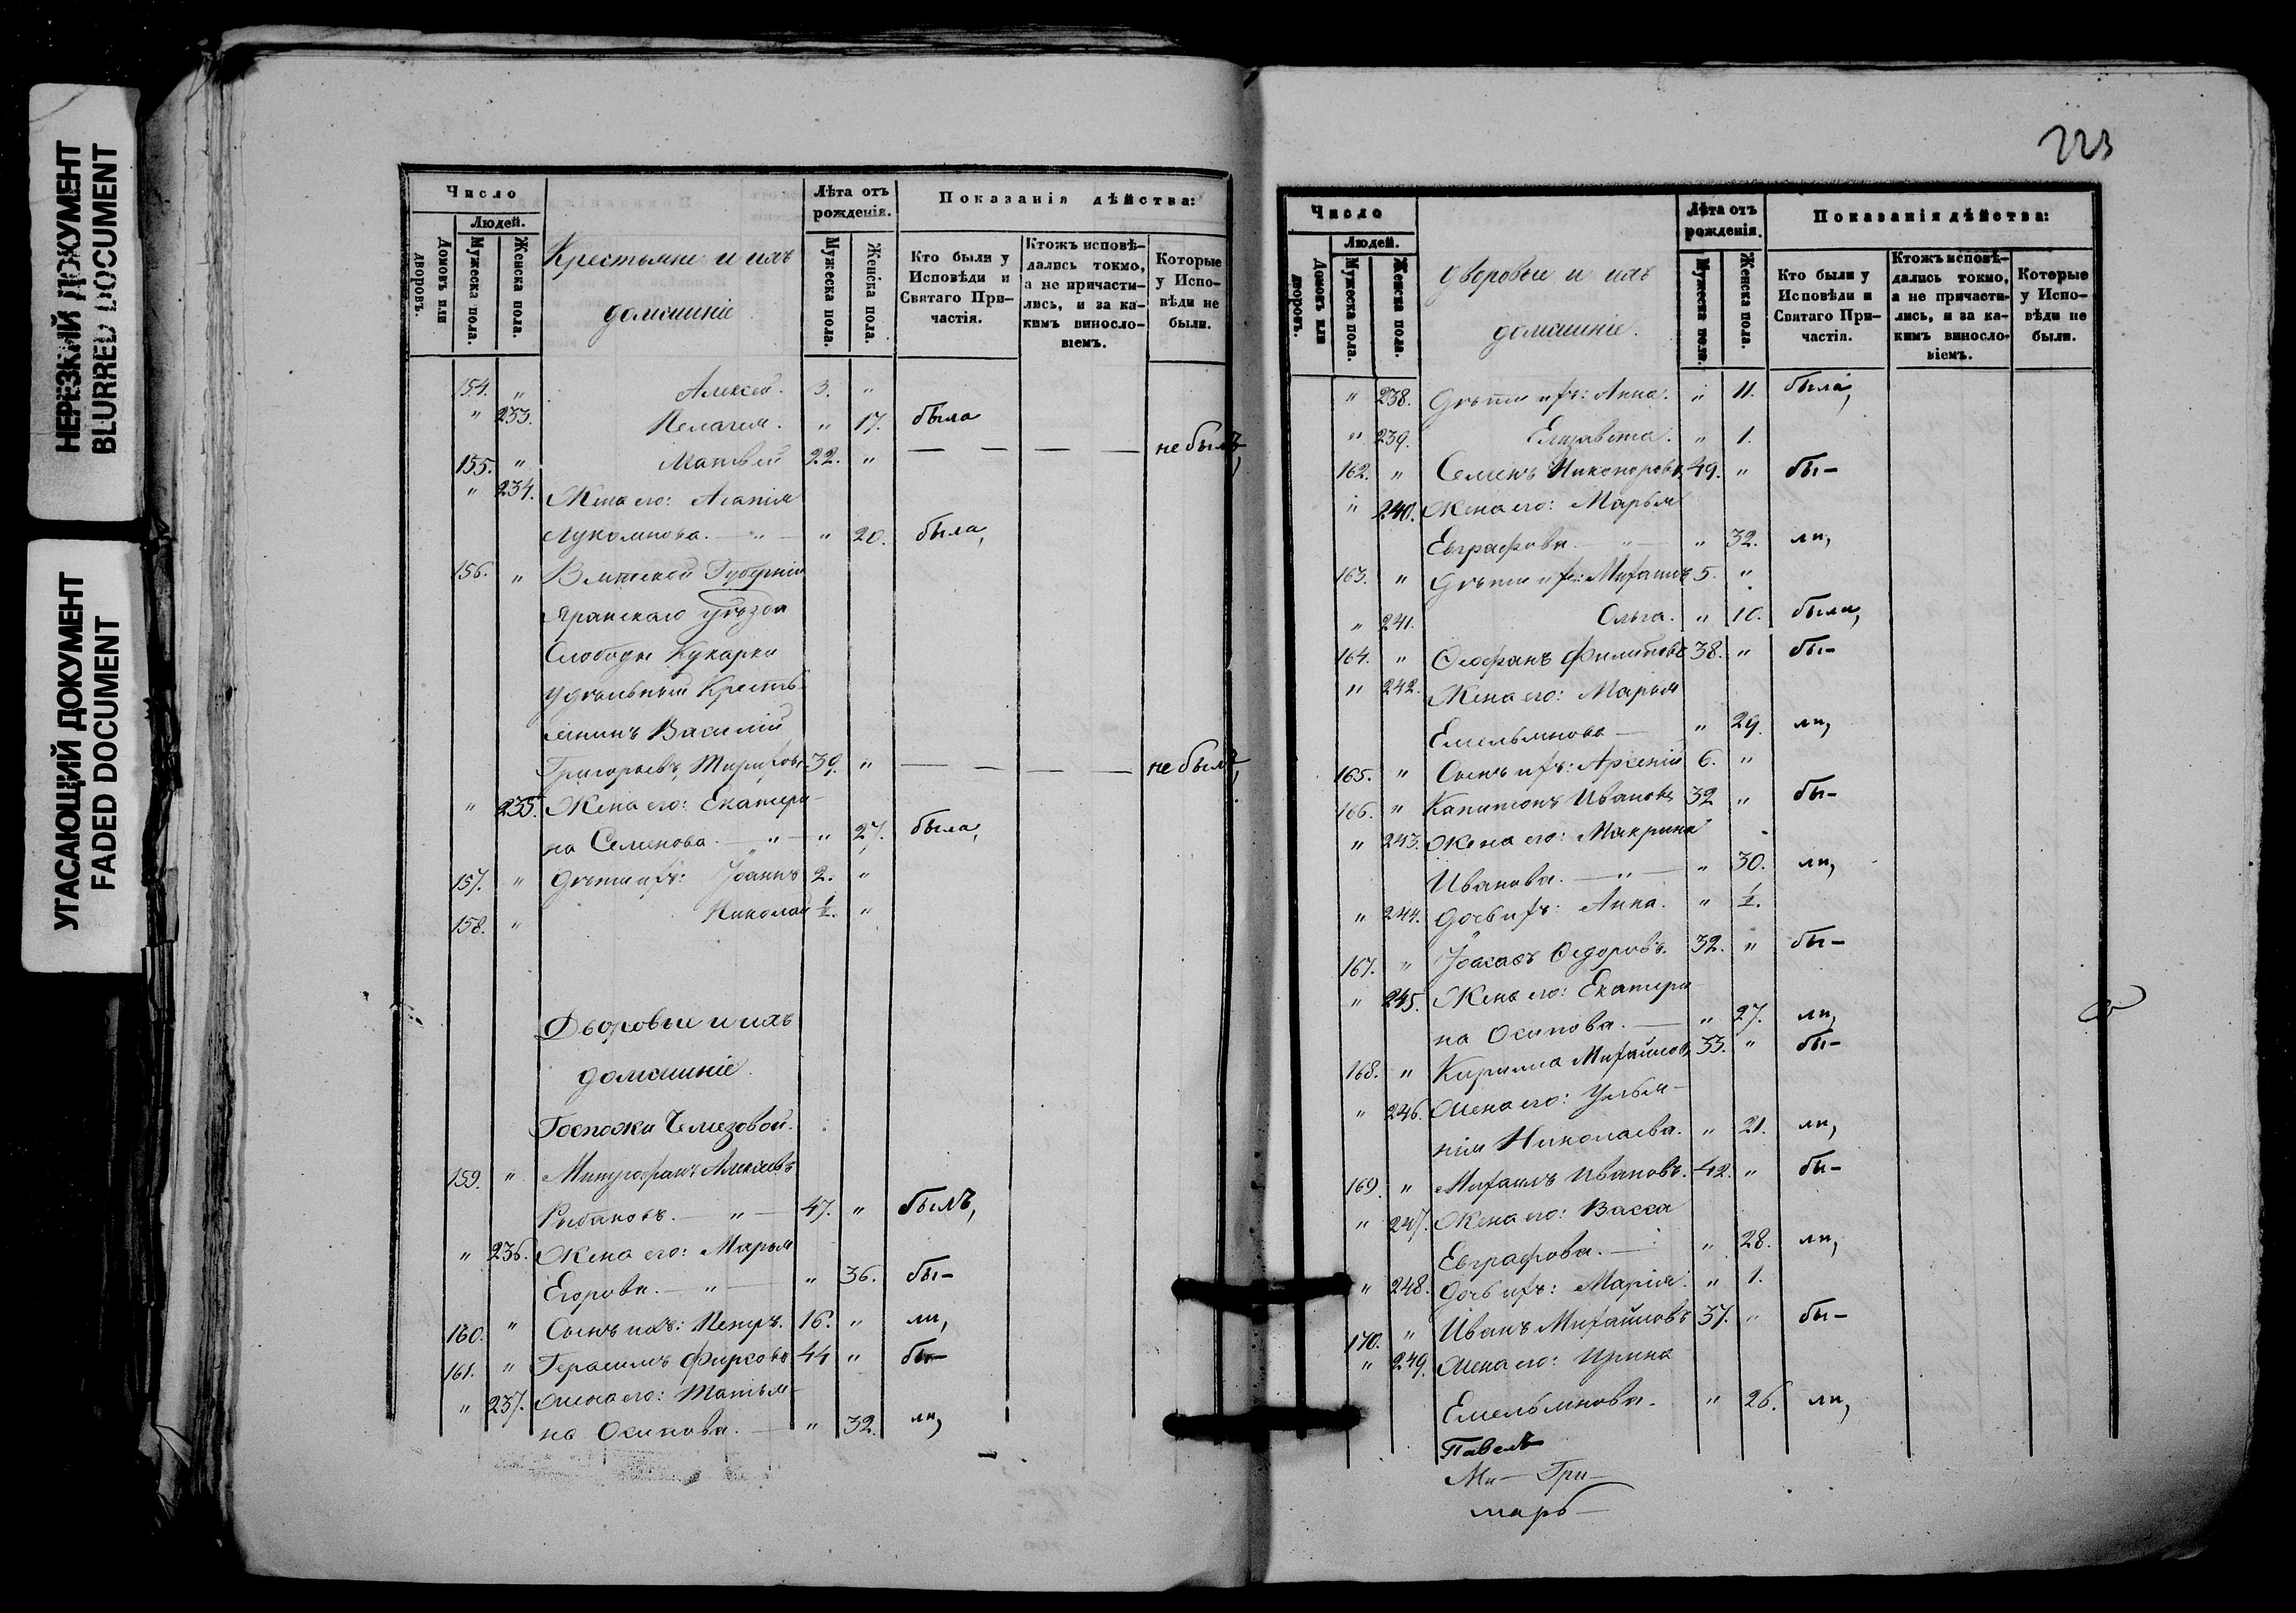 НЕРЕЗКИЙ ДОКУМЕНТ
BLURRED DOCUMENT
УГАСАЮЩИЙ ДОКУМЕНТ
FADED DOCUMENT
Число
Людей.
Домовъ или дворовъ.
Мужеска пола.
Женска пола.
Крестьяне и ихъ
домашніе.
Лѣта отъ рожденія.
Мужеска пола.
Женска пола.
Показанія дѣйства:
Кто были у Исповѣди и Святаго Причастія.
Ктожъ исповѣдались токмо, а не причастились, и за какимъ винословіемъ.
Которые у Исповѣди не были.
154. " Алексей. 3. "
" 233. Пелагея. " 17. была
155. " Матвей 22. " — — — — не былъ,
" 234. Жена его: Агапія
Лукоянова. — " — " 20. была,
156. " Вятской Губерніи
Яранскаго уѣзда
Слободы Кукарки
удѣльный Кресть-
янинъ Василій
Григорьевъ 39. " — — — — не былъ,
" 235. Жена его: Екатери-
на Семенова. — " — " 27. была,
157. " Дѣти ихъ: Іоаннъ 2. "
158. " Николай ½. "
Дворовые и ихъ
домашніе.
Госпожи
159. " Митрофанъ Алексѣевъ
— " — 47. " былъ,
" 236. Жена его: Марья
Егорова. — " — " 36. бы-
160. " Сынъ ихъ: Петръ. 16. " ли,
161. " Герасимъ Фирсовъ 44 " бы-
" 237. Жена его: Татья-
на Осипова. — " 32. ли,
223
Число
Людей.
Домовъ или дворовъ.
Мужеска пола.
Женска пола.
Дворовые и ихъ
домашніе.
Лѣта отъ рожденія.
Мужеска пола.
Женска пола.
Показанія дѣйства:
Кто были у Исповѣди и Святаго Причастія.
Ктожъ исповѣдались токмо, а не причастились, и за какимъ винословіемъ.
Которые у Исповѣди не были.
" 238. Дѣти ихъ: Анна. " 11. была,
" 239. Елизавета. " 1.
162. " Семенъ Никоноровъ 49. " бы-
" 240. Жена его: Марья
Евграфова. — " — " 32. ли,
163. " Дѣти ихъ: Михаилъ 5. "
" 241. Ольга. " 10. была,
164. " Ѳеофанъ Филиповъ 38. " бы-
" 242. Жена его: Марья
Емельянова — " 29. ли,
165. " Сынъ ихъ: Арсеній 6. "
166. " Капитонъ Ивановъ 32 " бы-
" 243. Жена его: Макрина
Иванова. — " — " 30. ли,
" 244. Дочь ихъ: Анна. " ½.
167. " Іоасафъ Ѳедоровъ. 32. " бы-
" 245. Жена его: Екатери-
на Осипова. — " 27. ли,
168. " Кирилла Михайловъ 33. " бы-
" 246. Жена его: Улья-
нія Николаева. " 21. ли,
169. " Михаилъ Ивановъ. 42. " бы-
" 247. Жена его: Васса
Евграфова. — " 28. ли,
" 248. Дочь ихъ: Марія. " 1.
170. " Иванъ Михайловъ 37. " бы-
" 249. Жена его: Ирина
Емельянова. " 26. ли,
Павелъ
Ми— Гри—
марб—